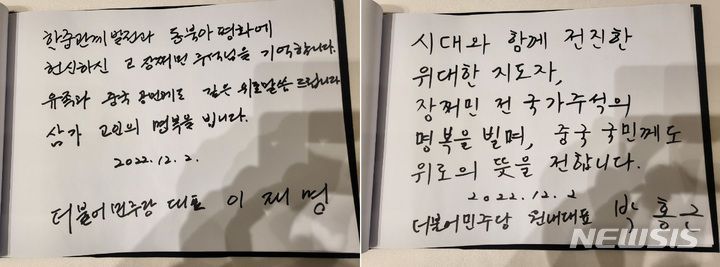 한중관계 발전과 동북아 평화에
헌신하신 고 장쩌민 주석님을 기억합니다.
유족과 중국 국민에게도 깊은 위로말씀 드립니다
삼가 고인의 명복을 빕니다.
2022.12.2.
더불어민주당 대표 이재명
시대와 함께 전진한
위대한 지도자,
장쩌민 전 국가주석의
명복을 빌며, 중국 국민께도
위로의 뜻을 전합니다.
2022.12.2
더불어민주당 원내대표 박홍근
NEWSIS